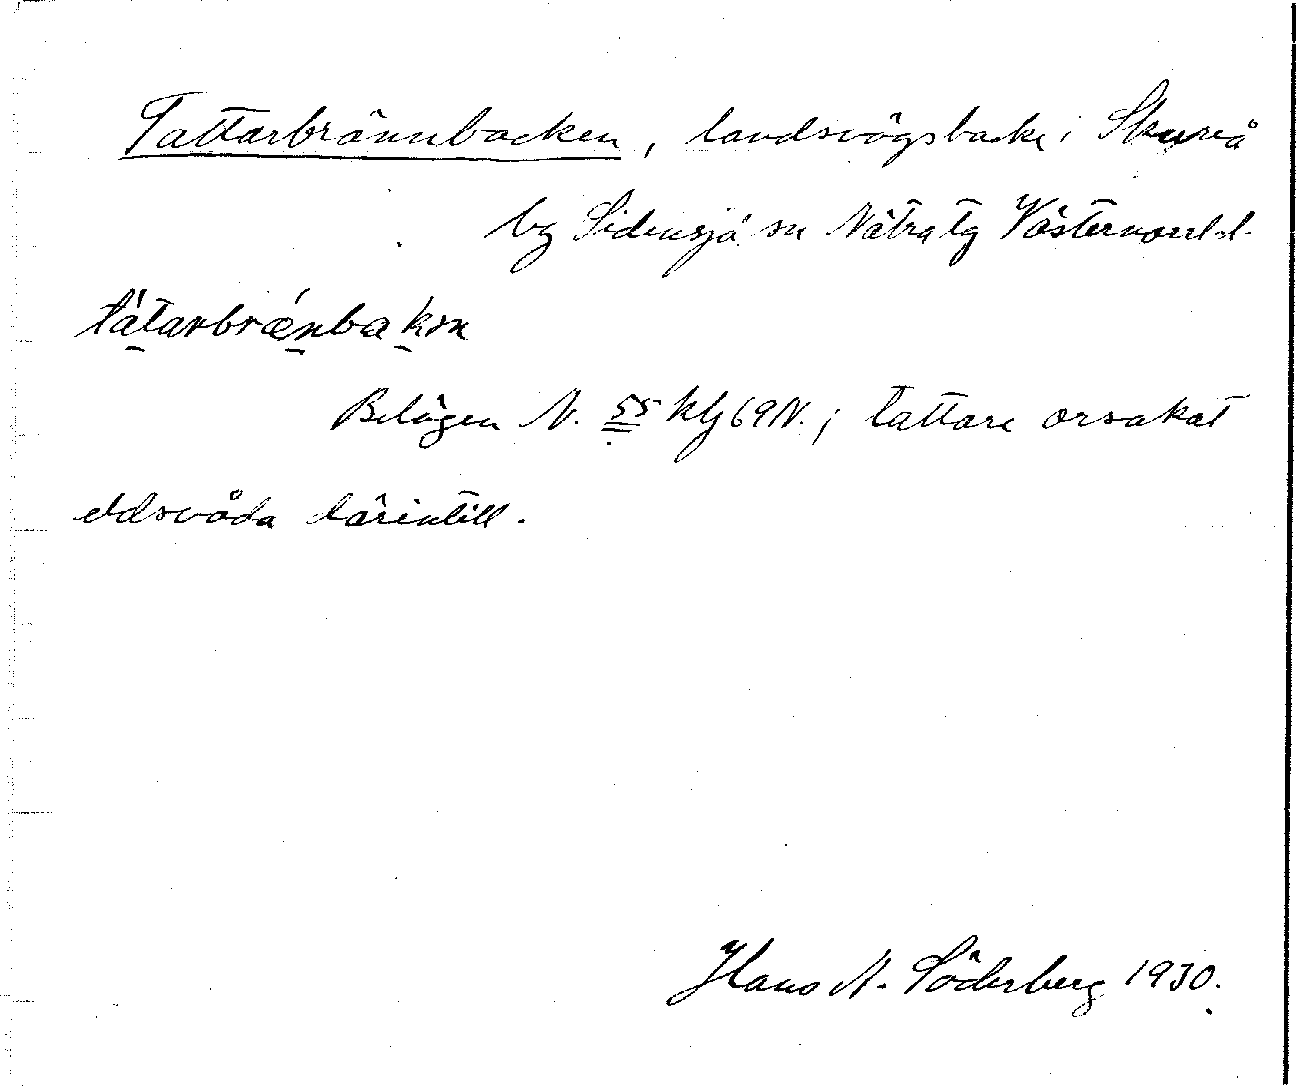 Tattarbrännbacken, landsvägsbacke i Skureå
by Sidensjö sn Nätra tg Västernorrl.l.
tátarbrǽnbakən
Belägen N. 55 klj 69N.; tattare orsakat
eldsvåda därintill.
Hans N. Söderberg 1930.